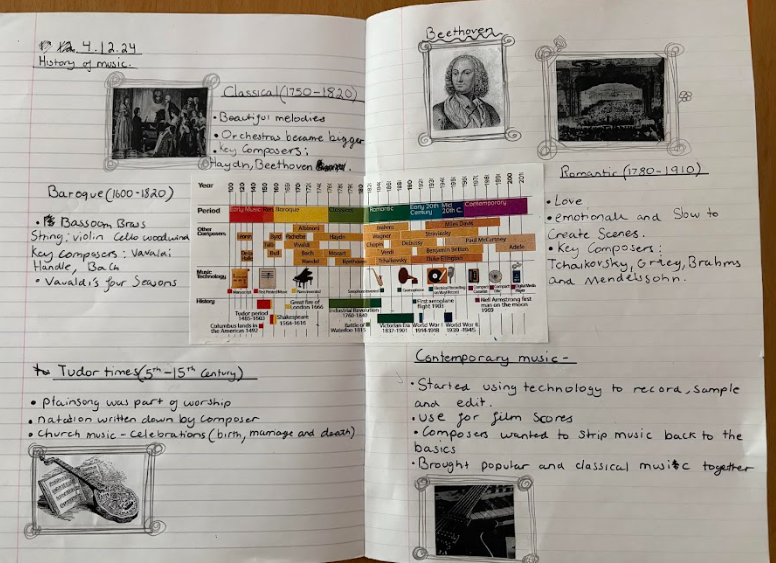 12.4.12.24
History of music.
Classical (1750-1820)
• Beautiful melodies
• Orchestras became bigger
• Key Composers:
Haydn, Beethoven
Baroque (1600-1820)
• Bassoon Brass
String: violin Cello woodwind
Key Composers: Vavaldi
Handle, Bach
• Vavaldi's four Seasons
Tudor times (5th-15th Century)
• Plainsong was part of worship
• notation written down by composer
• Church music - Celebrations (birth, marriage and death)
Year
Period
Early Music
Baroque
Classical
Romantic
Early 20th Century
Mid 20th C.
Contemporary
Other
Composers
Albinoni
Brahms
Miles Davis
Byrd
Pachelbel
Haydn
Wagner
Stravinsky
Tallis
Vivaldi
Chopin
Debussy
Paul McCartney
Bach
Mozart
Verdi
Benjamin Britten
Adele
Handel
Beethoven
Tchaikovsky
Duke Ellington
Music
Technology
History
Tudor period
1485-1603
Great fire of
London 1666
Industrial Revolution
1760-1840
First aeroplane
flight 1903
Neil Armstrong first
man on the moon
1969
Columbus lands in
the Americas 1492
Shakespeare
1564-1616
Battle of
Waterloo 1815
Victorian Era
1837-1901
World War I
1914-1918
World War II
1939-1945
Beethoven
Romantic (1780-1910)
• Love
• emotionale and Slow to
Create Scenes.
• Key Composers:
Tchaikovsky, Grieg, Brahms
and Mendelssohn.
Contemporary music -
• Started using technology to record, sample
and edit.
• Use for film Scores
• Composers wanted to strip music back to the
basics
• Brought popular and classical music together